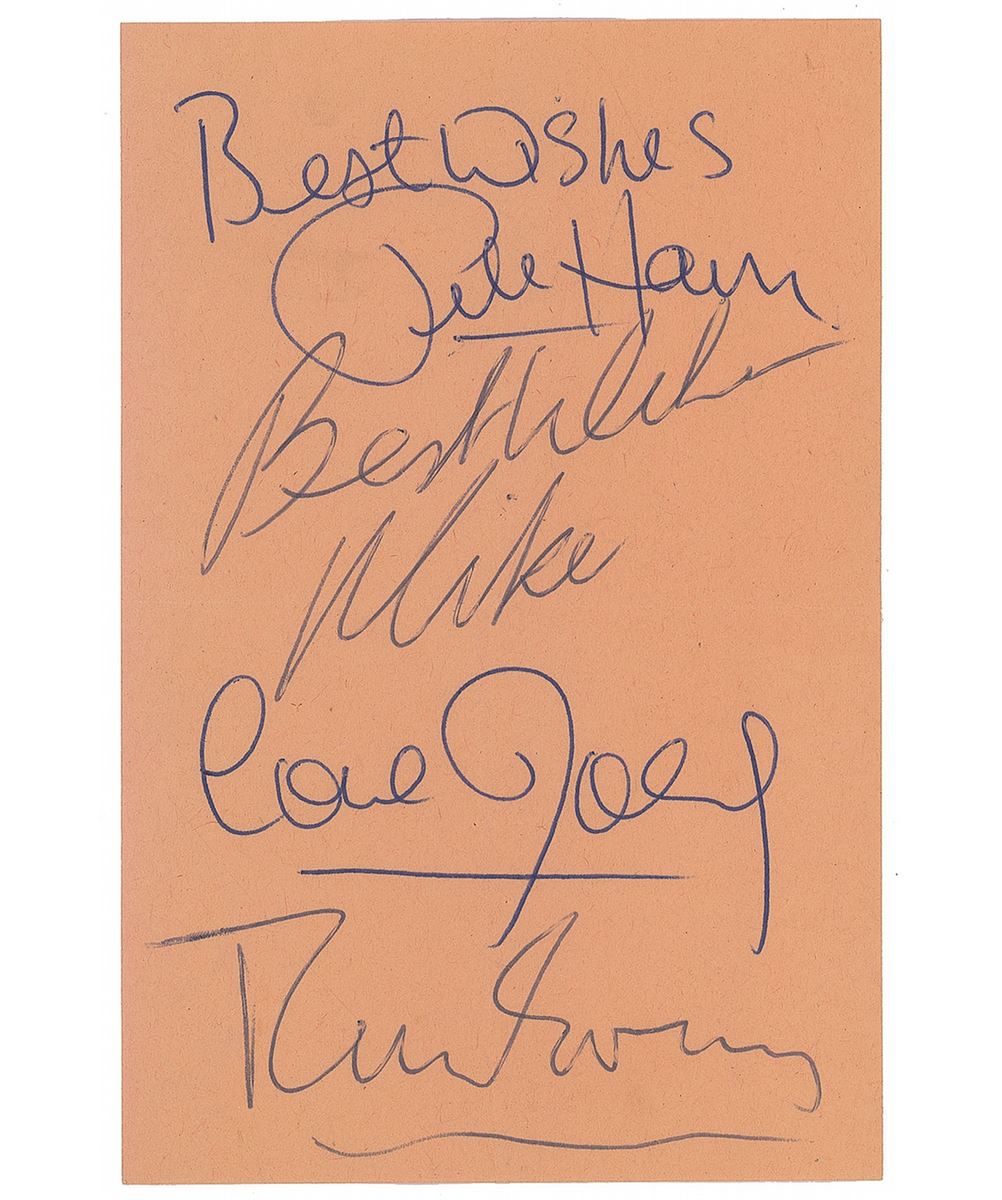 Best Wishes
Pete Ham
Best Wishes
Mike
Love Joey